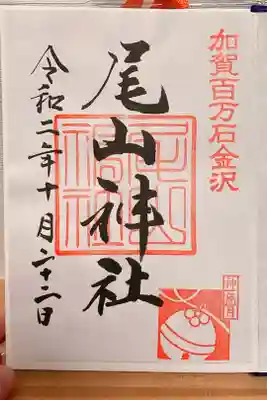 加賀百万石金沢
尾山神社
令和二年十月二十二日